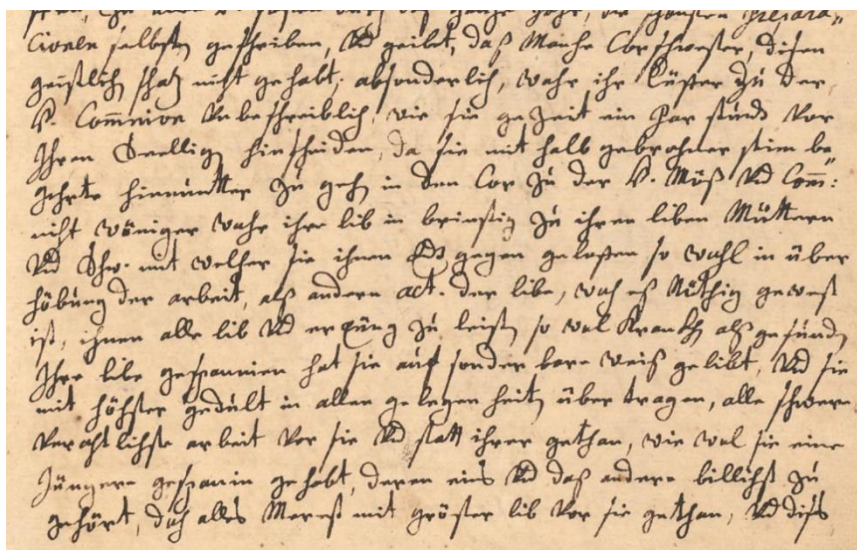 Cionen selbsten geschriben, Vnd geibt, daß Manche Corschwester, disen
geistlich schatz nicht gehabt; absonderlich, wahr ihr Lüster zu der,
V. Commnion Vnbeschreiblich, wie sie zu Zeit ein Par stundt Vor
Ihren Seeligen hinscheiden, da sie mit halb gebrochner stim be
gehrte hinuntter zu gehen in den Cor zu der H. Mäß Vnd Comm:
nicht weniger wahr ihre lib in brinstig zu ihren liben Müttern
Vnd Schw. mit welcher sie ihnen gegen geloffen so wohl in über
höbung der arbeit, alß andern act. der libe, wo es Nüthig geweß
ist, ihnen alle lib Vnd zu leist, so wol Krankh alß gesundt
Ihre libe gespannien hat sie auf sonder bare weiß gelibt, Vnd sie
mit höchster gedult in allen gelegen heit über tragen, alle schwere
Verachtlichste arbeit Vor sie Vnd statt ihrer gethan, wie wol sie eine
Jüngere gespanin gehabt, deren eins Vnd daß andere billichst zu
gehört, doch alles Merest mit gröster lib Vor sie gethan, Vnd diß